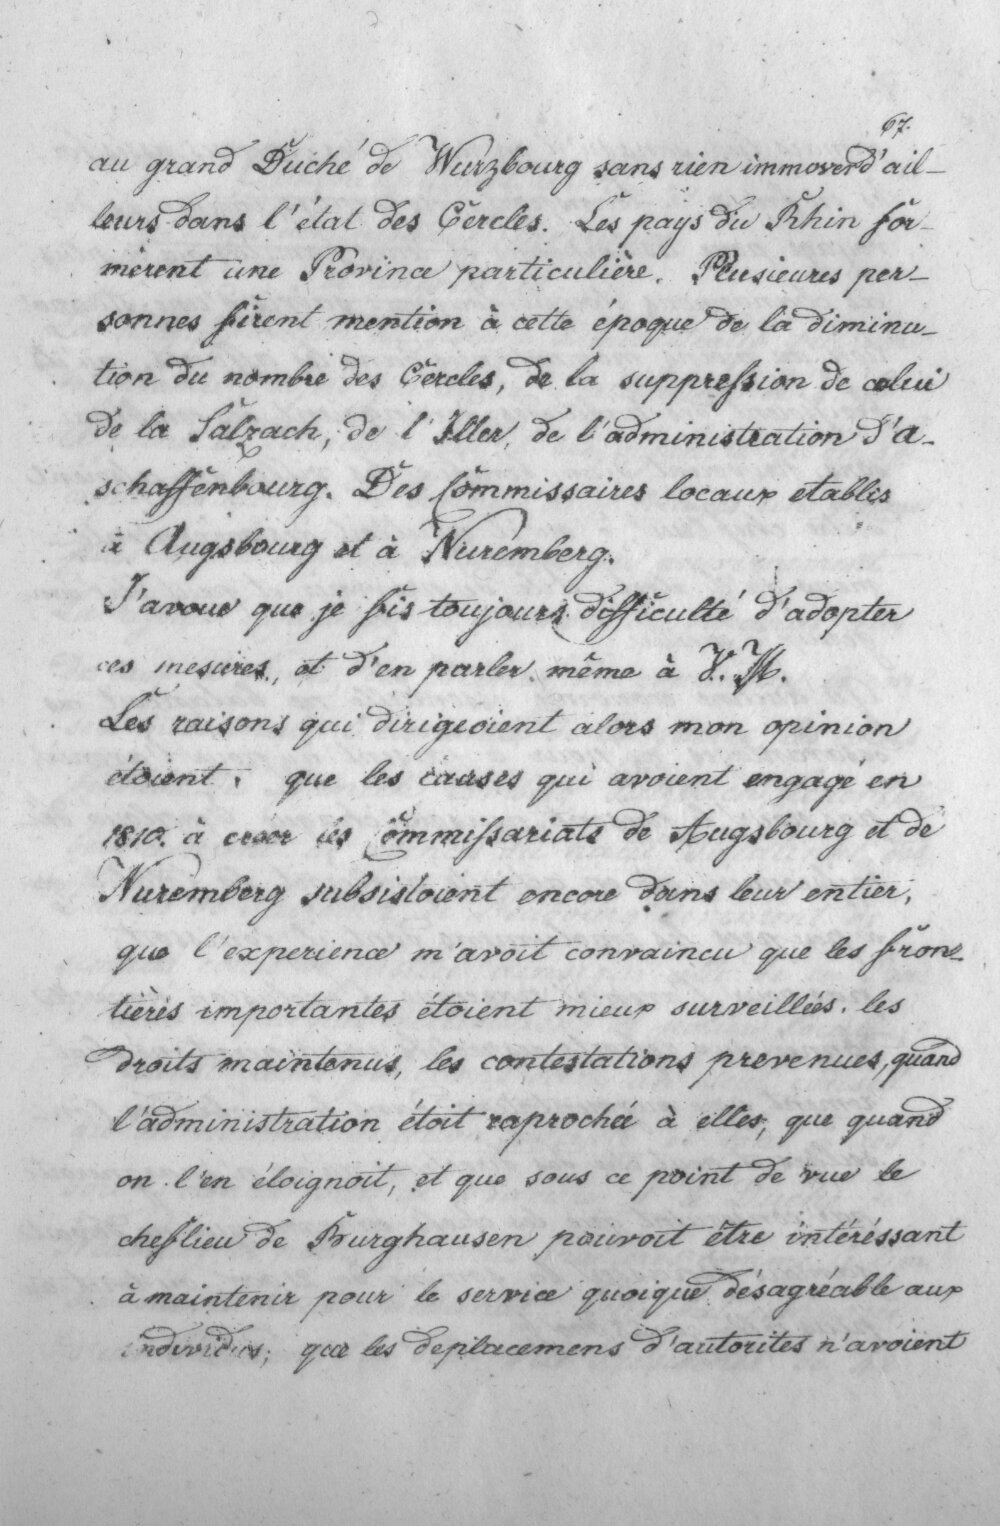 67.
au grand Duché de Wurzbourg sans rien immover d'ail-
leurs dans l'état des Cercles. Les pays du Rhin for-
mèrent une Province particulière. Plusieures per-
sonnes firent mention à cette époque de la diminu-
tion du nombre des Cercles, de la suppression de celui
de la Salzach, de l'Iller, de l'administration d'A-
schaffenbourg. Des Commissaires locaux etablis
à Augsbourg et à Nuremberg.
J'avoue que je fis toujours difficulté d'adopter
ces mesures, et d'en parler même à V. M.
Les raisons qui dirigeoient alors mon opinion
étoient, que les causes qui avoient engagé en
1810. à créer les Commissariats de Augsbourg et de
Nuremberg subsistoient encore dans leur entier,
que l'experience m'avoit convaincu que les fron-
tières importantes étoient mieux surveillées. les
droits maintenus, les contestations prevenues, quand
l'administration étoit raprochée à elles, que quand
on l'en éloignoit, et que sous ce point de vue le
cheflieu de Burghausen pouvoit être intéréssant
à maintenir pour le service quoique désagréable aux
individus; que les deplacemens d'autorites n'avoient